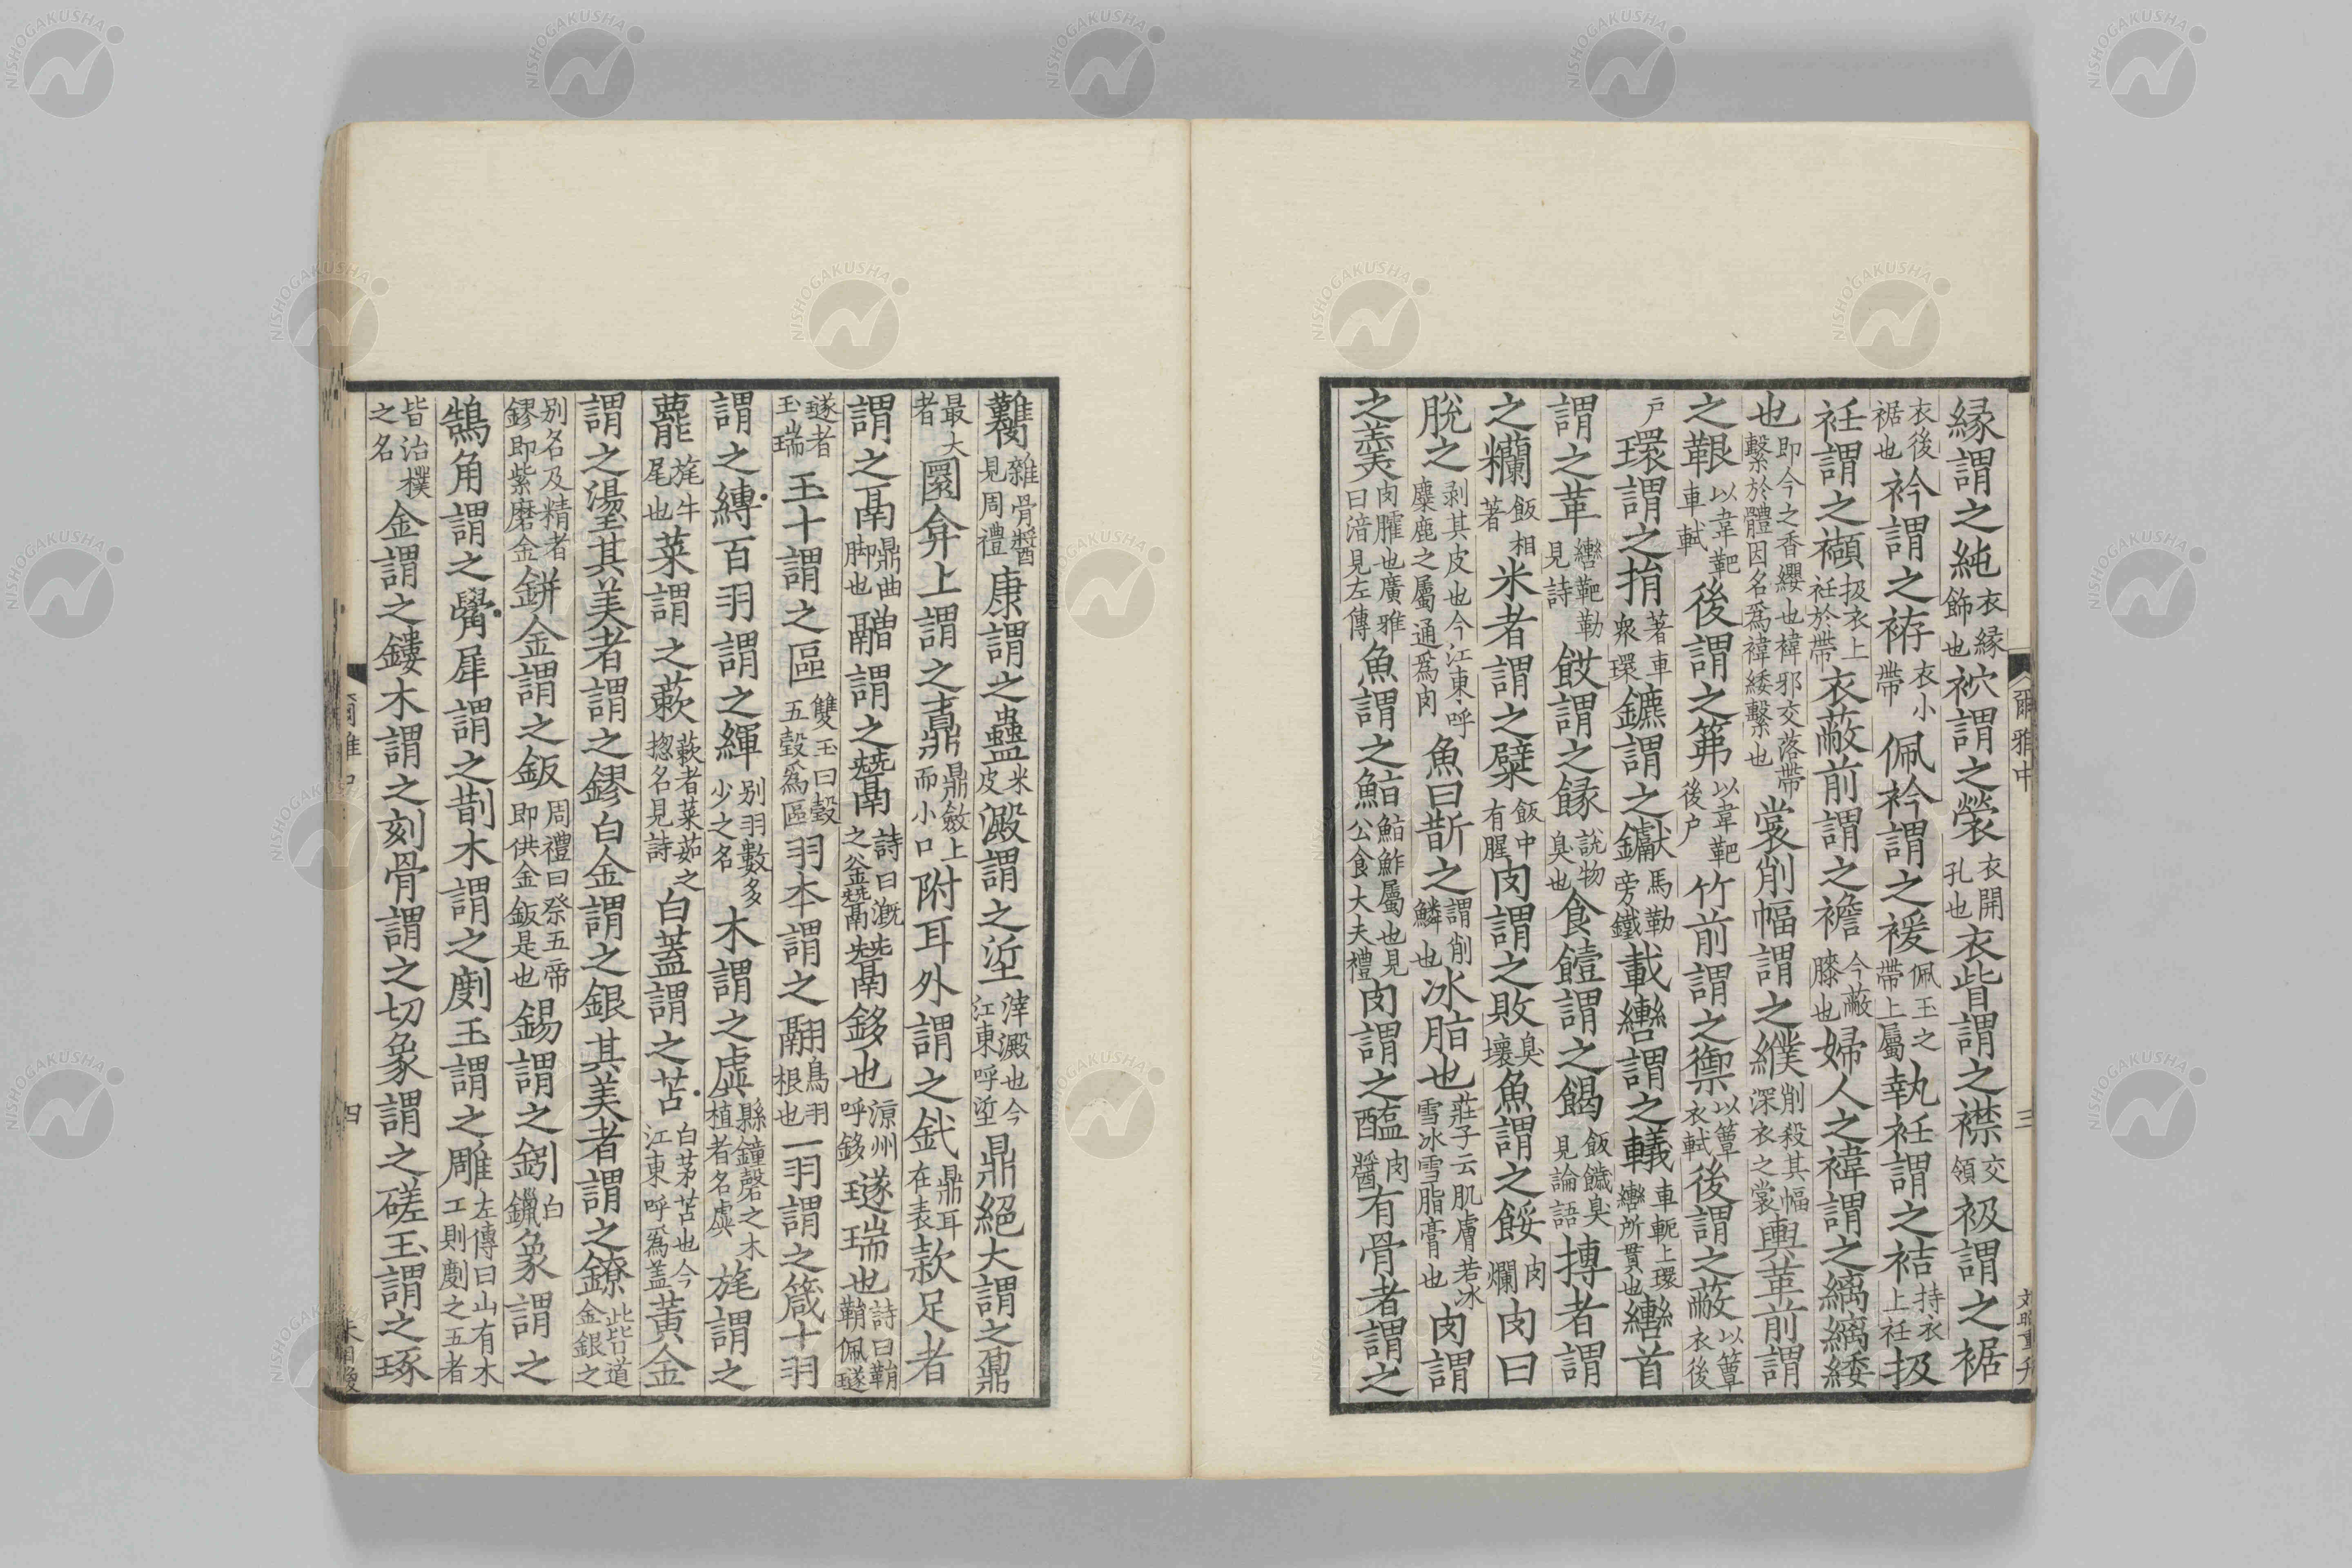 緣謂之純衣緣飾也袕謂之褮衣開孔也衣眥謂之襟交領衱謂之裾
衣後裾也衿謂之袸衣小帶佩衿謂之褑佩玉之帶上屬執衽謂之袺持衣上衽扱
衽謂之襭扱衣上衽於帶衣蔽前謂之襜今蔽膝也婦人之褘謂之縭縭緌
也即今之香纓也褘邪交落帶繫於體因名爲褘緌繫也裳削幅謂之纀削殺其幅深衣之裳輿革前謂
之鞎以韋靶車軾後謂之笰以韋靶後户竹前謂之禦以簟衣軾後謂之蔽以簟衣後
户環謂之捐著車衆環鑣謂之钀馬勒旁鐵載轡謂之轙車軛上環轡所貫也轡首
謂之革轡靶勒見詩餀謂之餯說物臭也食饐謂之餲飯饖臭見論語摶者謂
之糷飯相著米者謂之糪飯中有腥肉謂之敗臭壞魚謂之餒肉爛肉曰
脫之剥其皮也今江東呼麋鹿之屬通爲肉魚曰斮之謂削鱗也冰脂也莊子云肌膚若冰雪冰雪脂膏也肉謂
之羹肉臛也廣雅曰湆見左傳魚謂之鮨鮨鮓屬也見公食大夫禮肉謂之醢肉醬有骨者謂之
爾雅中
三
臡雜骨醬見周禮康謂之蠱米皮澱謂之垽滓澱也今江東呼垽鼎絕大謂之鼐
最大者圜弇上謂之鼒鼎斂上而小口附耳外謂之釴鼎耳在表款足者
謂之鬲鼎曲脚也䰝謂之鬵詩曰溉之釜鬵鬵鉹也涼州呼鉹璲瑞也詩曰鞙鞙佩璲
璲者玉瑞玉十謂之區雙玉曰瑴五瑴爲區羽本謂之翮鳥羽根也一羽謂之箴十羽
謂之縳百羽謂之緷别羽數多少之名木謂之虡縣鐘磬之木植者名虡旄謂之
藣旄牛尾也菜謂之蔌蔌者菜茹之揔名見詩白蓋謂之苫白茅苫也今江東呼爲蓋黃金
謂之璗其美者謂之鏐白金謂之銀其美者謂之鐐此皆道金銀之
别名及精者鏐即紫磨金鉼金謂之鈑周禮曰祭五帝即供金鈑是也錫謂之鈏白鑞象謂之
鵠角謂之觷犀謂之剒木謂之劇玉謂之雕左傳曰山有木工則劇之五者
皆治樸之名金謂之鏤木謂之刻骨謂之切象謂之磋玉謂之琢
四